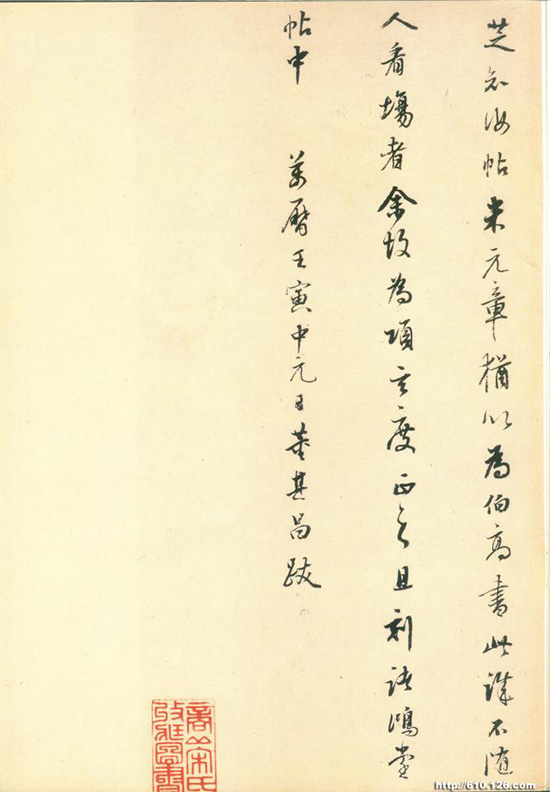 芝知汝帖米元章猶以為伯高書此不随
人看場者余故為項玄度正之且刻諸鴻堂
帖中 萬曆壬寅中元日董其昌跋
商丘宋氏
收藏圖書
http://610.126.com